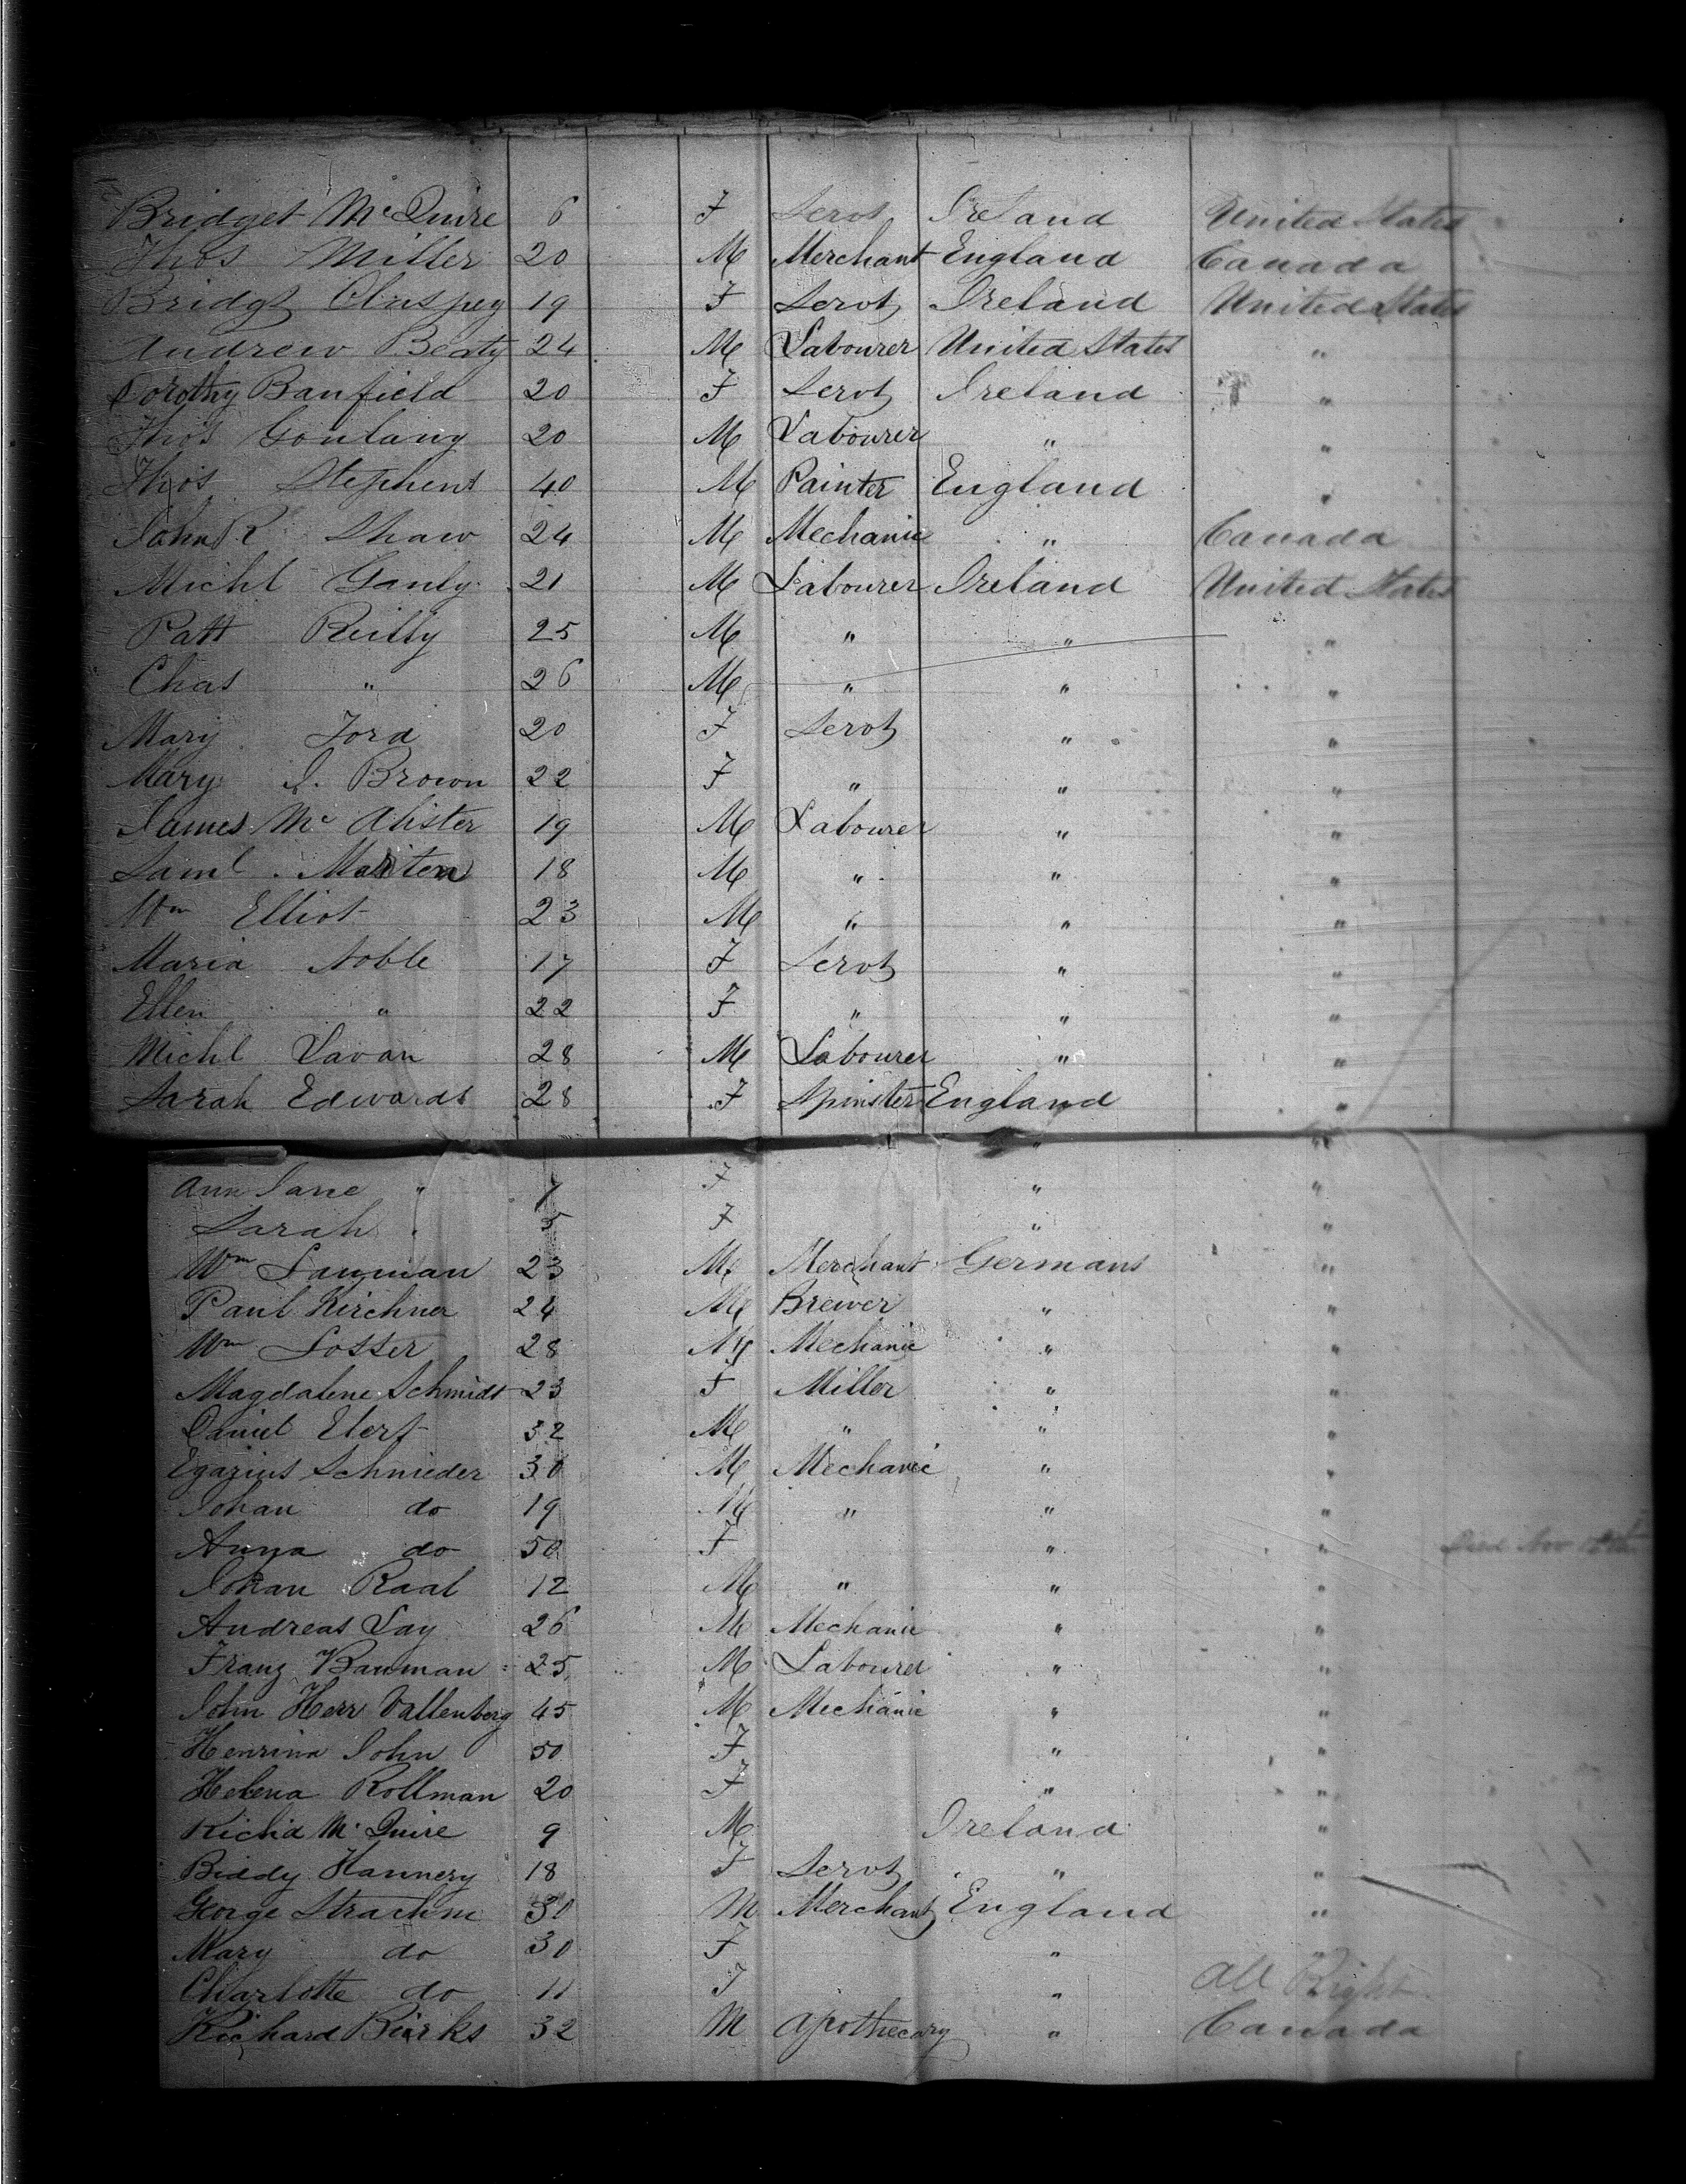 Bridget McQuire 6 F Servt Ireland United States
Thos Miller 20 M Merchant England Canada
Bridgt 19 F Servt Ireland United States
Andrew Beaty 24 M Labourer United States "
Dorothy Banfield 20 F Servt Ireland "
Thos 20 M Labourer " "
Thos Stephens 40 M Painter England "
John R Shaw 24 M Mechanic " Canada
Michl Ganly 21 M Labourer Ireland United States
Patt Reilly 25 M " " "
Chas " 26 M " " "
Mary Ford 20 F Servt " "
Mary J. Brown 22 F " " "
James Mc Alister 19 M Labourer " "
Saml Marten 18 M " " "
Wm Elliot 23 M " " "
Maria Noble 17 F Servt " "
Ellen " 22 F " " "
Michl Lavan 28 M Labourer " "
Sarah Edwards 28 F Spinster England "
" "
Ann Jane " 7 F " "
Sarah " 5 F " "
Wm Lauman 23 M Merchant Germans "
Paul Kirchner 24 M Brewer " "
Wm Losser 28 M Mechanic " "
Magdalene Schmidt 23 F Miller " "
Daniel Elert 32 M " " "
Egazius Schnieder 30 M Mechanic " "
Johan do 19 M " " "
Anna do 50 F " " Died Nov
Johan Raal 12 M " " "
Andreas Lay 26 M Mechanic " "
Franz Bauman 25 M Labourer " "
John Herr Vallenberg 45 M Mechanic " "
Henrina John 50 F " "
Helena Rollman 20 F " "
Richd McQuire 9 M Ireland "
Biddy Hannery 18 F Servt " "
George Strachm 30 M Merchant England "
Mary do 30 F " "
Charlotte do 11 F " All Right
Richard Birks 32 M Apothecary " Canada